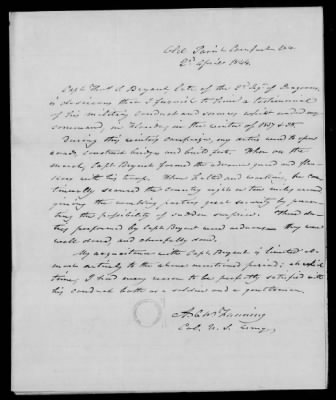 Old Point Comfort Va
2d April 1844.
Capt. Thos. S. Bryant, late of the 2d Reg. of Dragoons,
is desirous that I furnish to him a testimonial
of his military conduct and services whilst under my
command, in Florida, in the winter of 1837 & 38.
During this winter's campaign, my orders were to open
roads, construct bridges and build forts. When on the
march, Capt. Bryant formed the advance guard and flan-
kers with his troop. When halted and working, he con-
tinually scoured the country eight or ten miles around
giving the working parties great security by preven-
ting the possibility of sudden surprise. The duties
thus performed by Capt. Bryant were arduous - they were
well done, and cheerfully done.
My acquaintance with Capt. Bryant is limited al-
most entirely to the above mentioned period; at which
time, I had every reason to be perfectly satisfied with
his conduct both as a soldier and a gentleman.
A. C. W. Fanning
Col. U. S. Army.